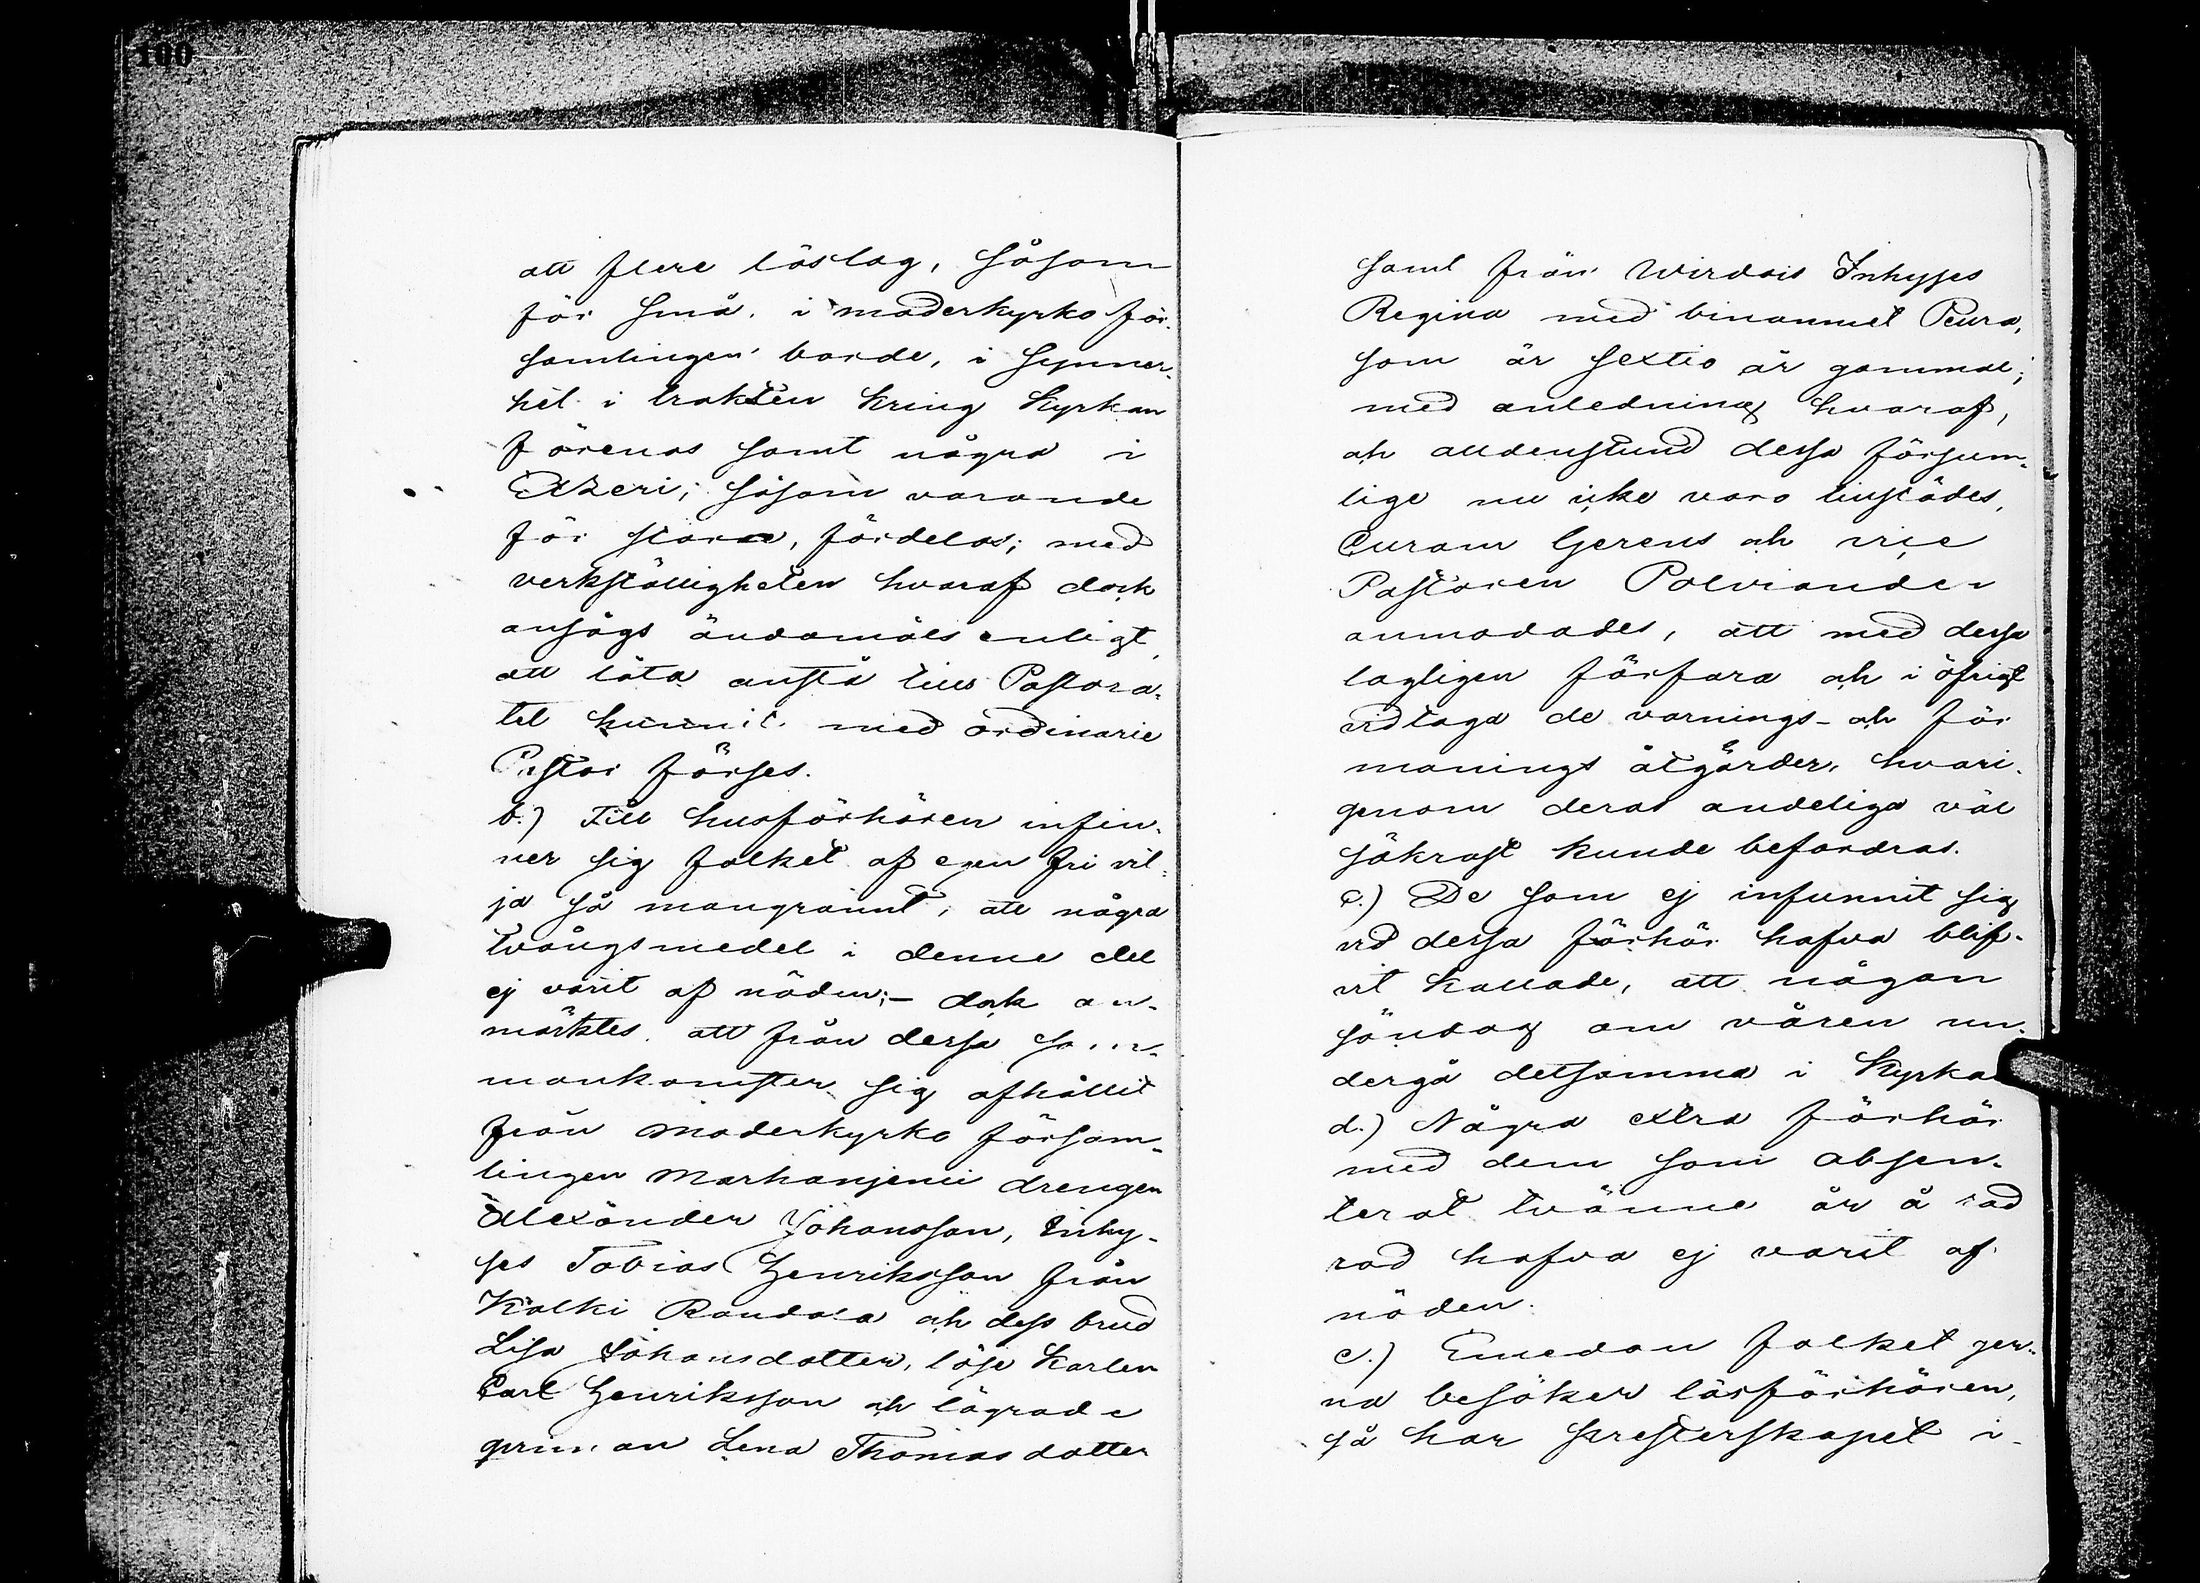 100
att flere läslag, såsom
för små, i moderkyrko för-
samlingen borde, i synner-
hêt i trakten kring Kyrkan
förenas samt några i
Etzeri; såsom varande
för stora, fördelas; med
verkställigheten hvaraf dock
ansågs ändamåls enligt,
att låta anstå tills Pastora-
tet hunnit med ordinarie
Pastor förses.
b.) Till husförhören infin-
ner sig folket af egen fri vil-
ja så mangrannt, att några
tvångsmedel i denne del
ej varit af nöden;- dock an-
märktes att från dessa sam-
mankomster sig afhållit
från moderkyrko försam-
lingen Marhanjemi drengen
Alexander Johansson, Inhy-
ses Tobias Henriksson från
Kolki Randala och dess brud
Lisa Johansdotter, löse Karlen
Carl Henriksson och lägrade
qvinnan Lena Thomasdotter
samt från Wirdois Inhyses
Regina med binamnet Peura,
som är sextio år gammal;
med anledning hvaraf,
och alldenstund dessa försum-
lige nu icke voro tillstädes,
Curam Gerens och vice
Pastoren Polviander
anmodades, att med dessa
lagligen förfara och i öfrigt
vidtaga de varnings- och för
manings åtgärder, hvari-
genom deras andeliga väl
säkrast kunde befordras.
c.) De som ej infunnit sig
vid dessa förhör hafva blif-
vit kallade, att någon
söndag om våren un-
dergå detsamma i Kyrkan
d.) Några extra förhör
med dem som absen-
terat tvänne år å rad
rad hafva ej varit af
nöden.
e.) Emedan folket ger-
na besöker läsförhören,
så har presterskapet i-